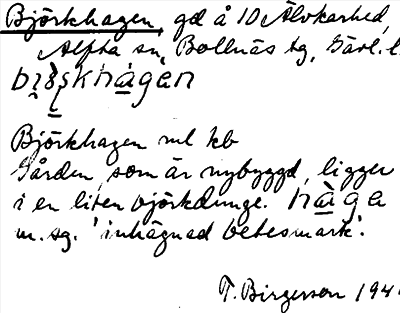 Björkhagen, gd å 10 Älvkarhed,
Alfta sn, Bollnäs tg, Gävl. l.
Björkhagen ml kb
Gården, som är nybyggd, ligger
i en liten björkdunge. hàga
m. sg. 'inhägnad betesmark'.
T. Birgersson 194